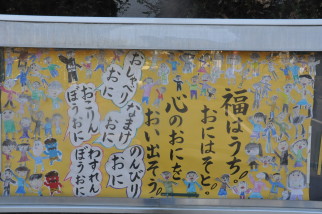 福はうち。
おにはそと。
心のおにを
おい出そう。
おしゃべり
おに
なまけ
おに
のんびり
おに
おこりん
ぼうおに
わすれん
ぼうおに